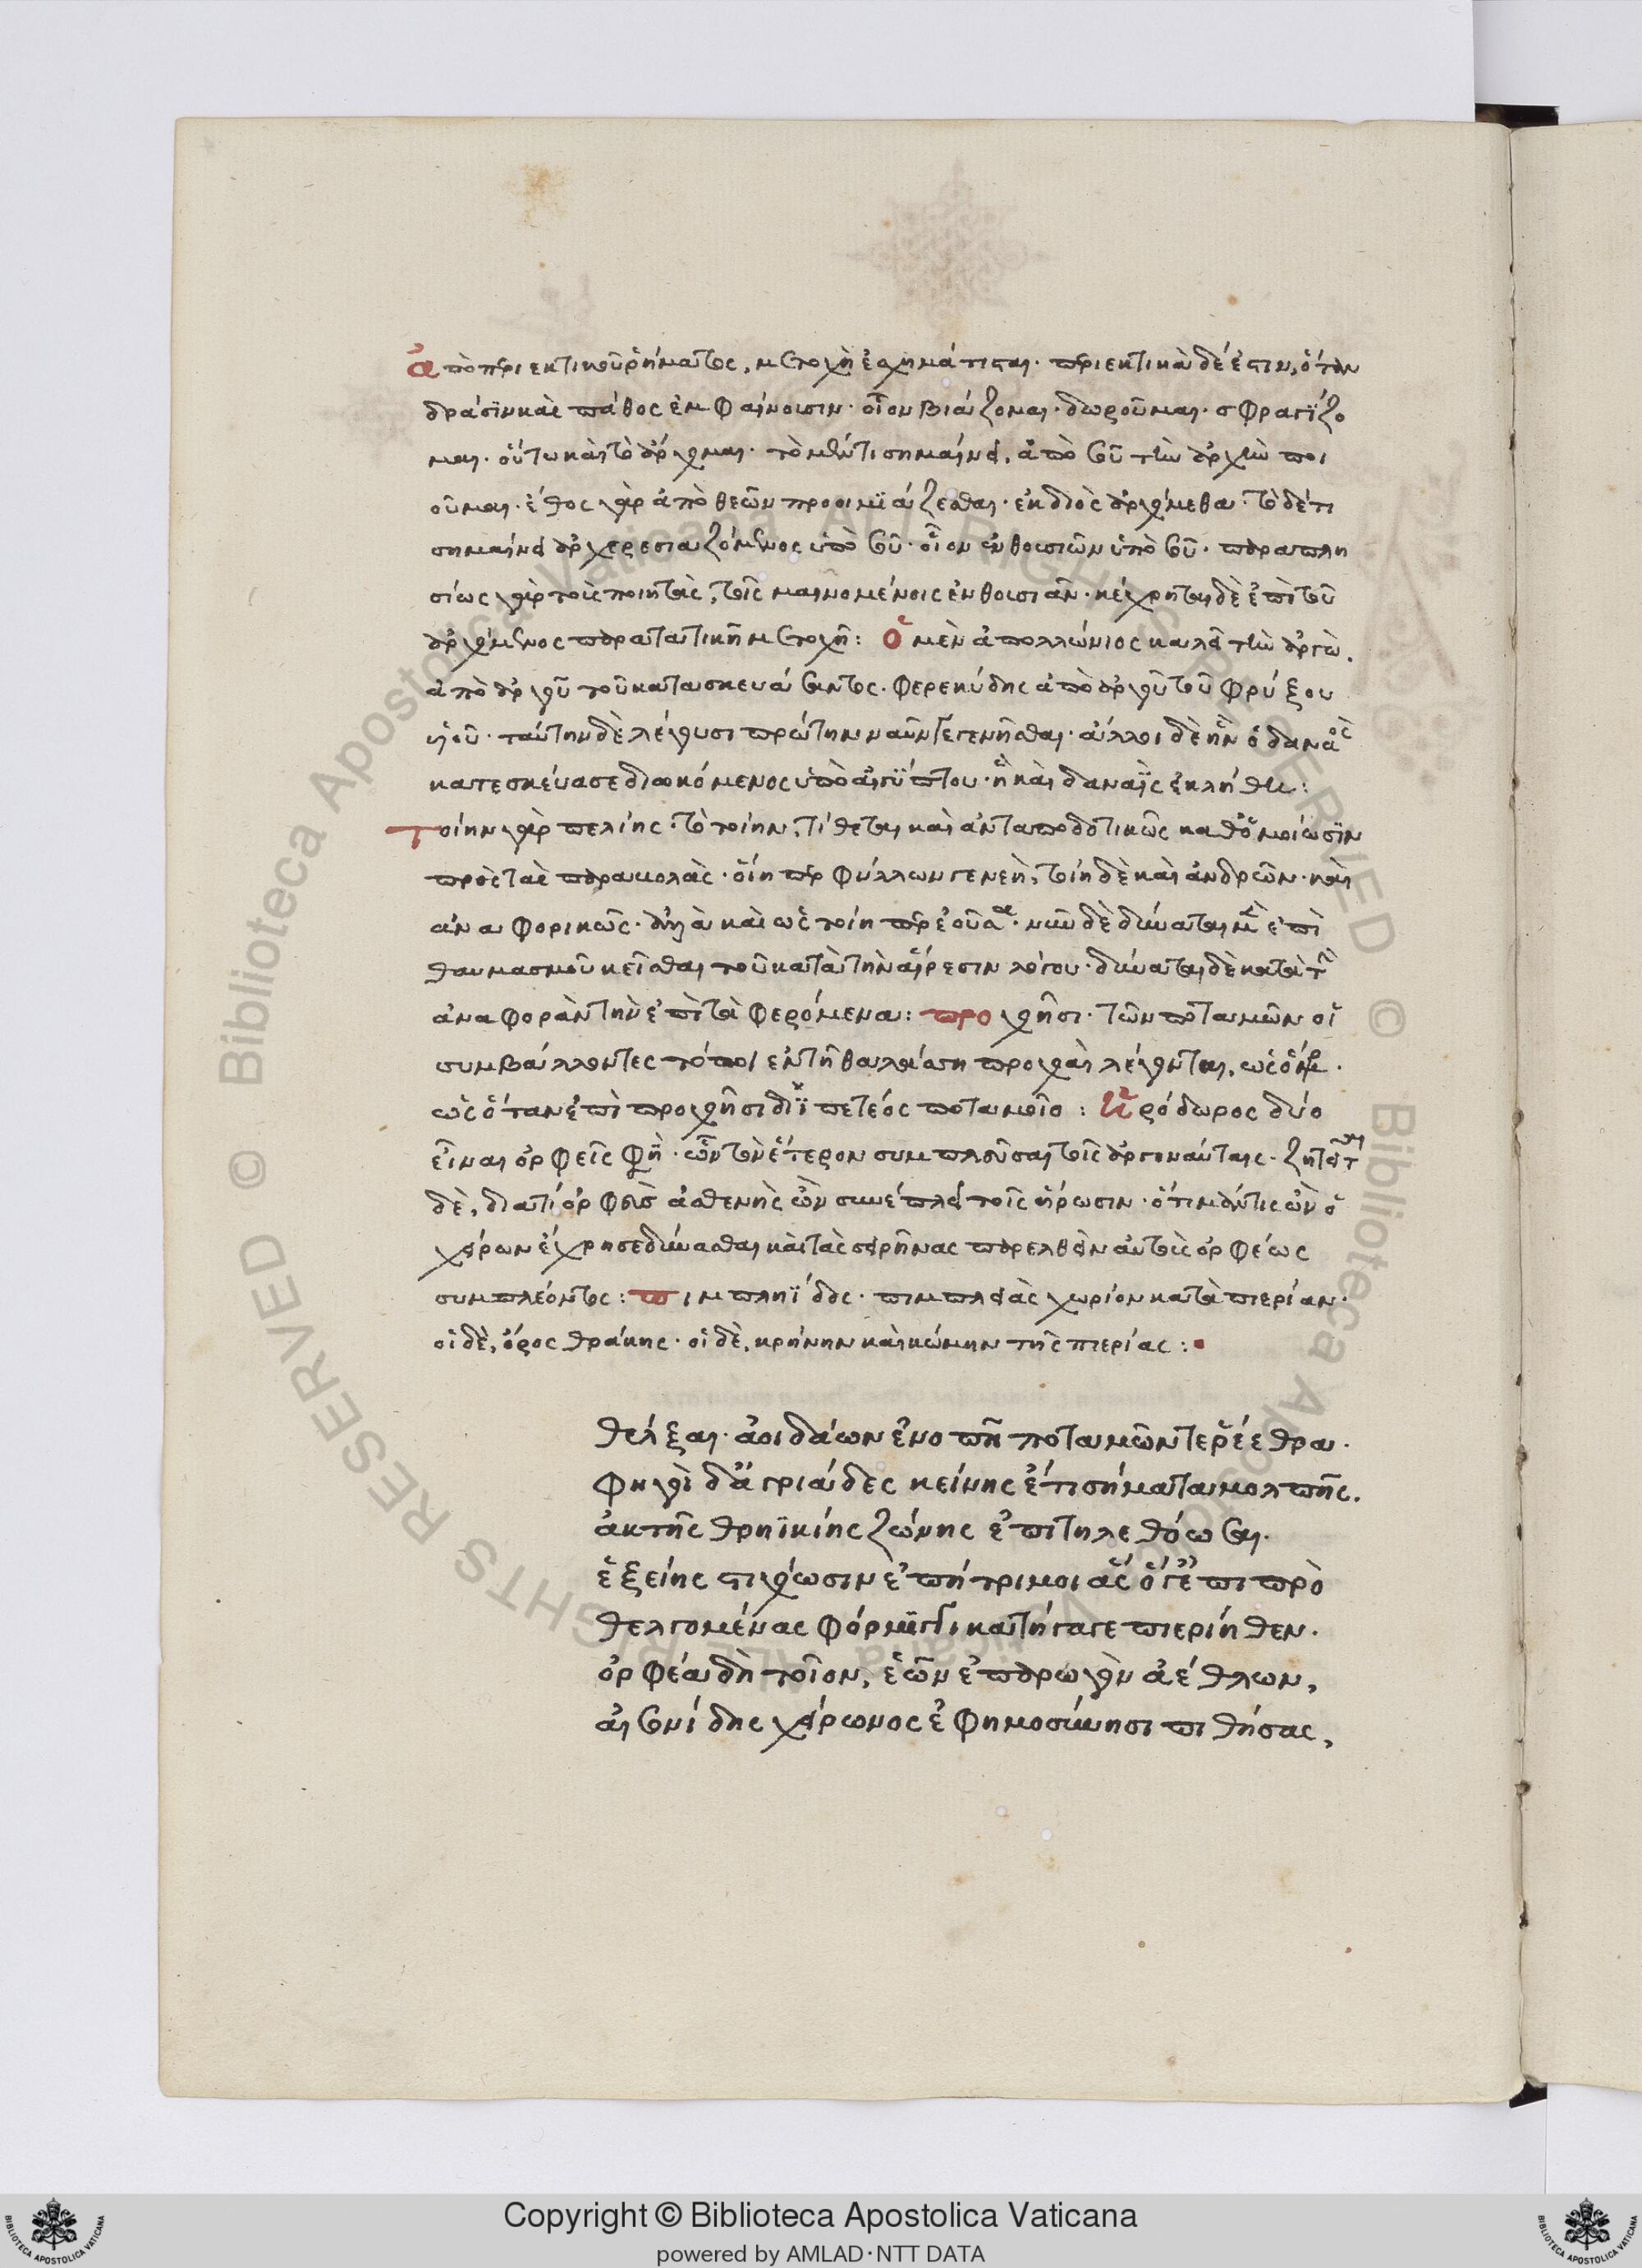 ἀπὸ περιεκτικοῦ ῥήματος, μετοχὴ ἐσχημάτισται· περιεκτικὰ δέ ἐστιν, ὅταν
δράσϊν καὶ πάθος ἐμφαίνουσιν· οἷον βιάζομαι· δωροῦμαι· σφραγΐζο
μαι· οὕτω καὶ τὸ ἄρχομαι· τὸ μέν τι σημαίνει, ἀπὸ σοῦ τὴν ἀρχὴν ποι
οῦμαι· ἔθος γὰρ ἀπὸ θεῶν προοιμϊάζεσθαι· ἐκ διὸς ἀρχόμεθα· τὸ δέ τι
σημαίνει ἀρχερεσιαζόμενος ὑπὸ σοῦ· οἷον ἐνθουσιῶν ὑπὸ σοῦ· παραπλη
σίως γὰρ τοὺς ποιητὰς, τοῖς μαινομένοις ἐνθουσιᾶν· κέχρηται δὲ ἐπὶ τοῦ
ἀρχόμενος παρατατικῇ μετοχῇ: Ὁ μὲν ἀπολλώνιος καλεῖ τὴν ἀργὼ,
ἀπὸ ἄργου τοῦ κατασκευάσαντος· φερεκύδης ἀπὸ ἄργου τοῦ φρύξου
υἱοῦ· ταύτην δὲ λέγουσι πρώτην ναῦν γεγενῆσθαι· ἄλλοι δὲ ἣν ὁ δαναὸς
κατεσκεύασε διωκόμενος ὑπὸ αἰγύπτου· ἣ καὶ δαναῒς ἐκλήθη:
τοίην γὰρ πελίης· τὸ τοίην, τίθεται καὶ ἀνταποδοτικῶς καθ' ὁμοίωσϊν
πρὸς τὰς παραβολὰς· οἵη περ φύλλων γενεὴ, τοίη δὲ καὶ ἀνδρῶν· καὶ
ἀναφορικῶς· ἀλλὰ καὶ ὣς τοίη περ ἐοῦσα· νῦν δὲ δύναται μὲν ἐπὶ
θαυμασμοῦ κεῖσθαι τοῦ κατὰ τὴν αἵρεσιν λόγου· δύναται δὲ κατὰ τὴν
ἀναφορὰν τὴν ἐπὶ τὰ φερόμενα: προχοῇσι· τῶν ποταμῶν οἱ
συμβάλλοντες τόποι ἐν τῇ θαλάσσῃ προχοαὶ λέγονται, ὡς ὅμηρος·
ὡς ὅταν ἐπὶ προχοῇσι διϊπετέος ποταμοῖο: Ἡρόδωρος δύο
εἶναι ὀρφεῖς φησὶ· ὧν τὸν ἕτερον συμπλεῦσαι τοῖς ἀργοναύταις· ζητεῖται
δὲ, διατί ὀρφεὺς ἀσθενὴς ὢν συνέπλει τοῖς ἥρωσιν· ὅτι μάντις ὢν ὁ
χείρων ἔχρησε δύνασθαι καὶ τὰς σειρῆνας παρελθεῖν αὐτοὺς ὀρφέως
συμπλέοντος: πιμπληΐδος· πιμπλειὰς χωρίον κατὰ πιερίαν·
οἱ δὲ, ὄρος θράκης· οἱ δὲ, κρήνην καὶ κώμην τῆς πιερίας:
θέλξαι· ἀοιδάων ἐνοπῇ ποταμῶν τε ῥέεθρα·
φηγοὶ δ' ἀγριάδες κείνης ἔτι σήματα μολπῆς,
ἀκτῆς θρηϊκίης ζώνης ἔπι τηλεθόωσαι·
ἑξείης στιχόωσιν ἐπήτριμοι ἃς ὅγ' ἐπιπρὸ
θελγομένας φόρμϊγγι κατήγαγε πιερίηθεν·
ὀρφέα δὴ τοῖον, ἑῶν ἐπαρωγὸν ἀέθλων,
αἰσονίδης χείρωνος ἐφημοσύνῃσι πιθήσας,
© Biblioteca Apostolica Vaticana ALL RIGHTS RESERVED
© Biblioteca Apostolica Vaticana ALL RIGHTS RESERVED
Copyright © Biblioteca Apostolica Vaticana
powered by AMLAD·NTT DATA
BIBLIOTECA APOSTOLICA VATICANA
BIBLIOTECA APOSTOLICA VATICANA